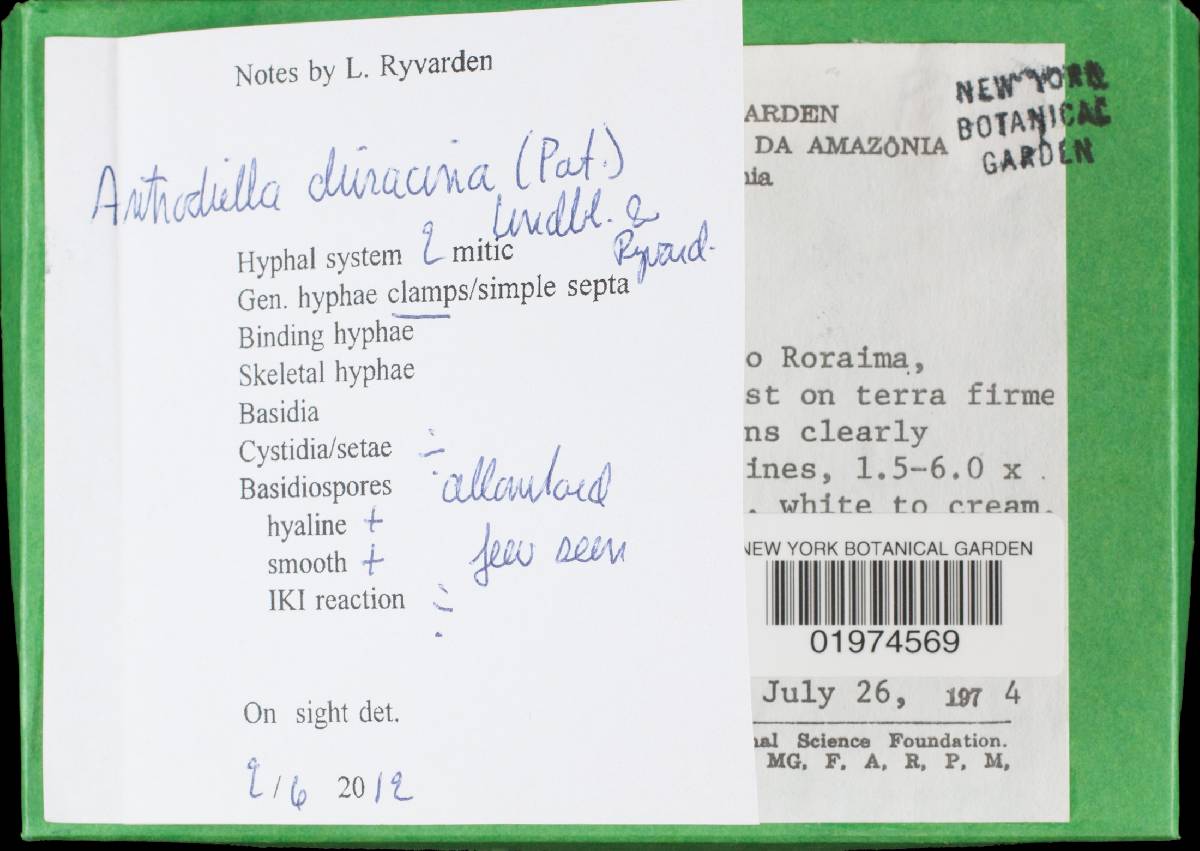 Notes by L. Ryvarden
Antrodiella duracina (Pat.)
Lindbl. &
Ryvard.
Hyphal system 2 mitic
Gen. hyphae clamps/simple septa
Binding hyphae
Skeletal hyphae
Basidia
Cystidia/setae ÷
Basidiospores allantoid
hyaline +
smooth + few seen
IKI reaction ÷
On sight det.
2/6 2012
NEW YORK
BOTANICAL
GARDEN
ARDEN
DA AMAZÔNIA
nia
o Roraima,
st on terra firme
ns clearly
ines, 1.5-6.0 x
. white to cream.
NEW YORK BOTANICAL GARDEN
01974569
July 26, 1974
nal Science Foundation.
MG, F, A, R, P, M,